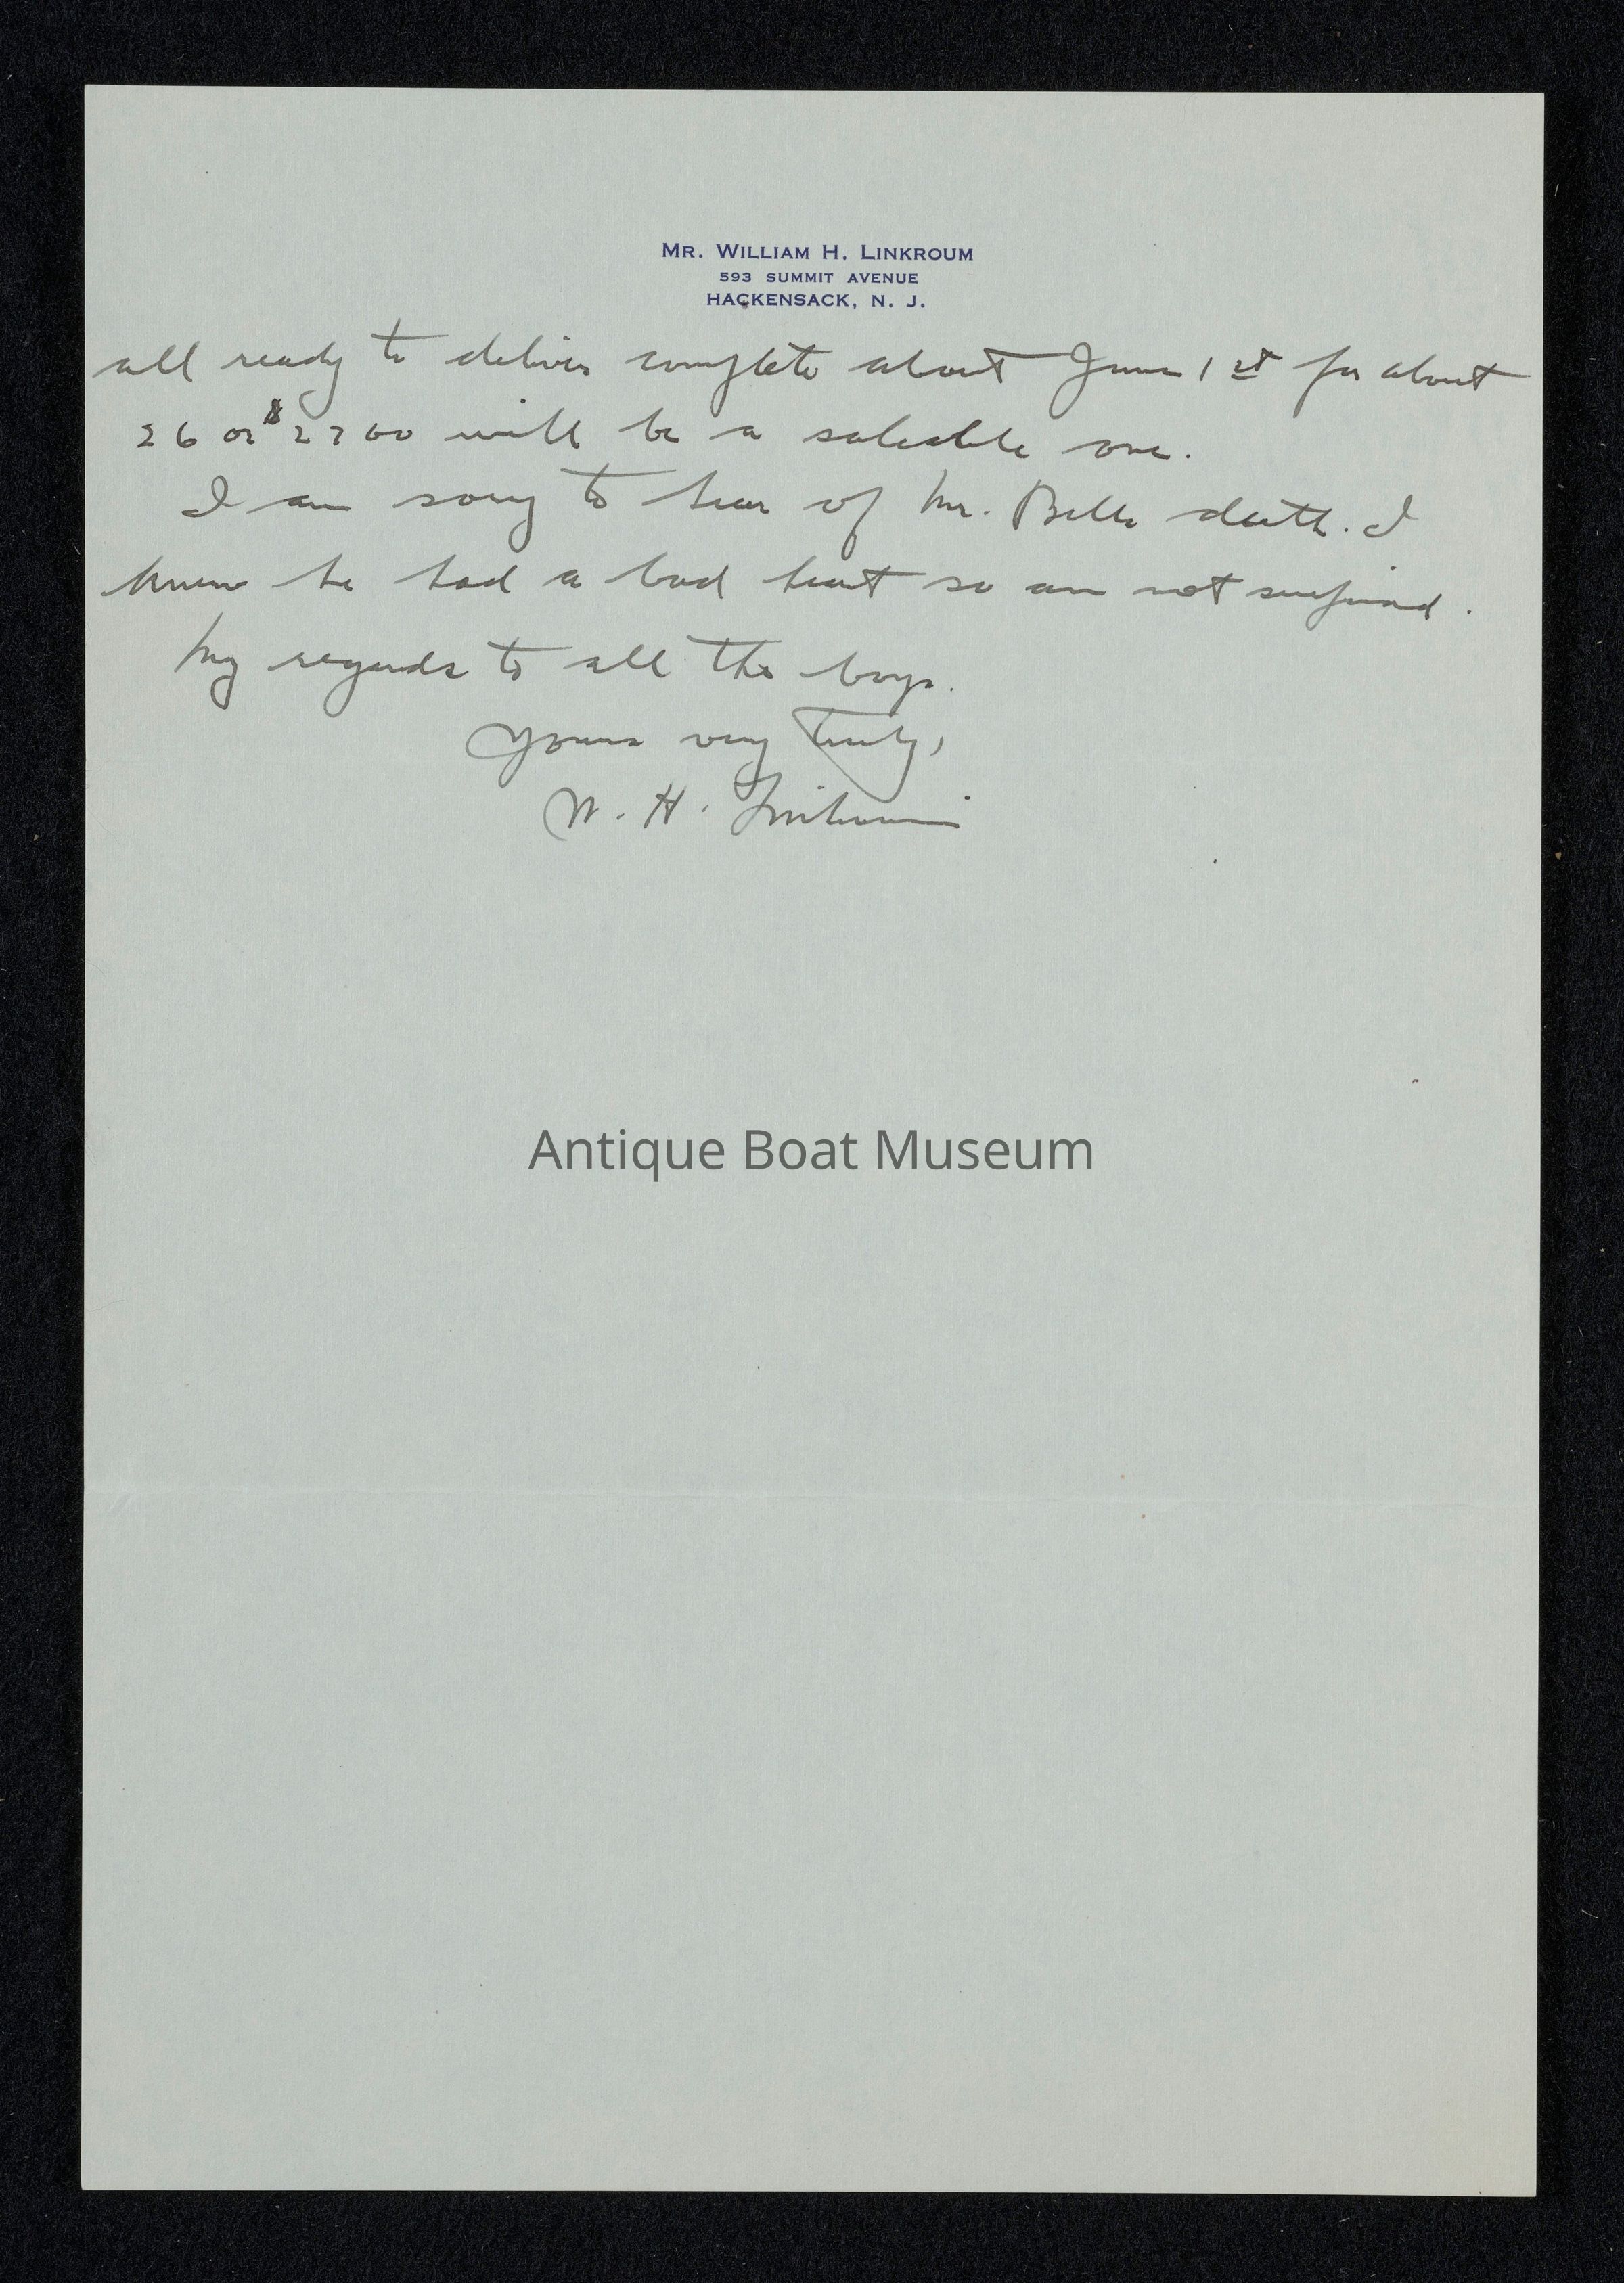 MR. WILLIAM H. LINKROUM
593 SUMMIT AVENUE
HACKENSACK, N. J.
all ready to deliver complete about June 1st for about
26 or $2700 will be a saleable one.
I am sorry to hear of Mr. Bells death. I
knew he had a bad heart so am not surprised.
My regards to all the boys.
Yours very truly,
W. H. Linkroum
Antique Boat Museum